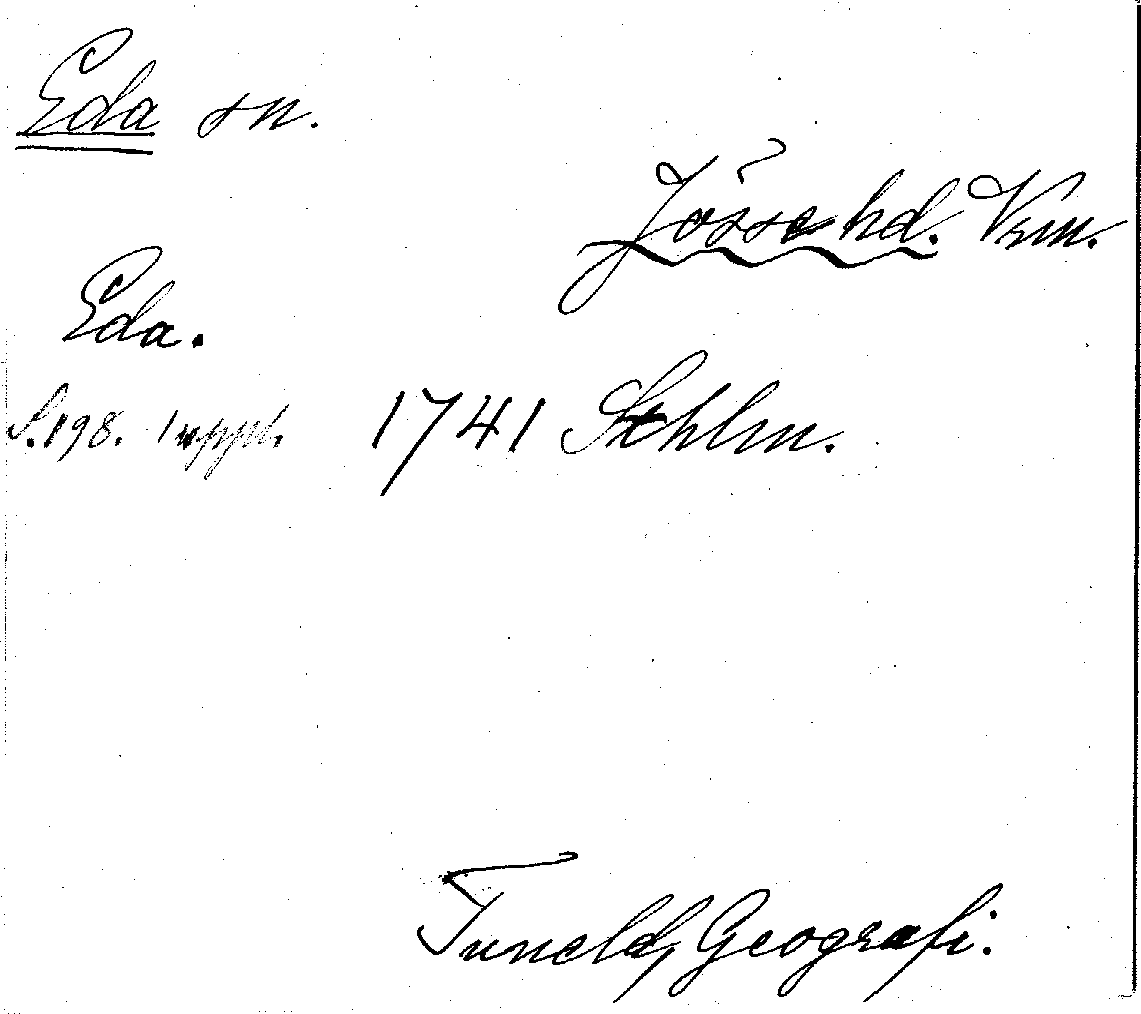 Eda sn.
Jösse hd. Vrm.
Eda.
S. 198. suppl. 1741 Sthlm.
Tuneld, Geografi.